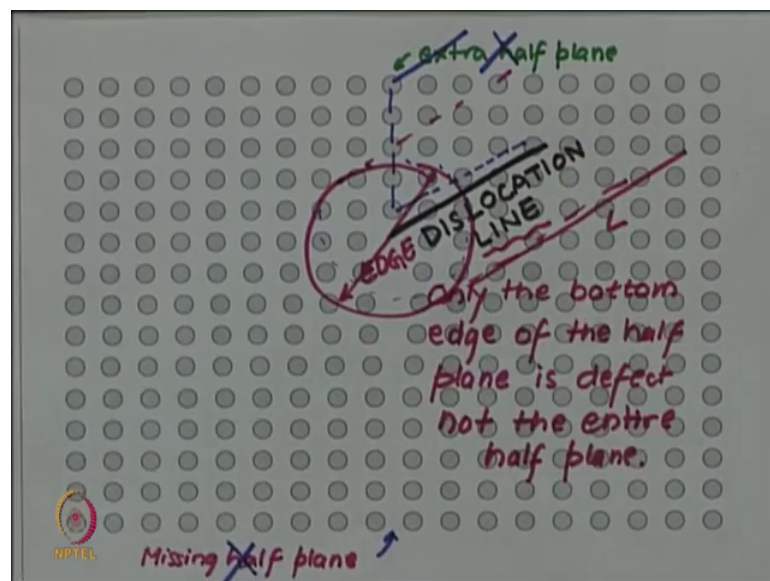 extra half plane
EDGE DISLOCATION
LINE
L
only the bottom
edge of the half
plane is defect
not the entire
half plane.
NPTEL
Missing half plane